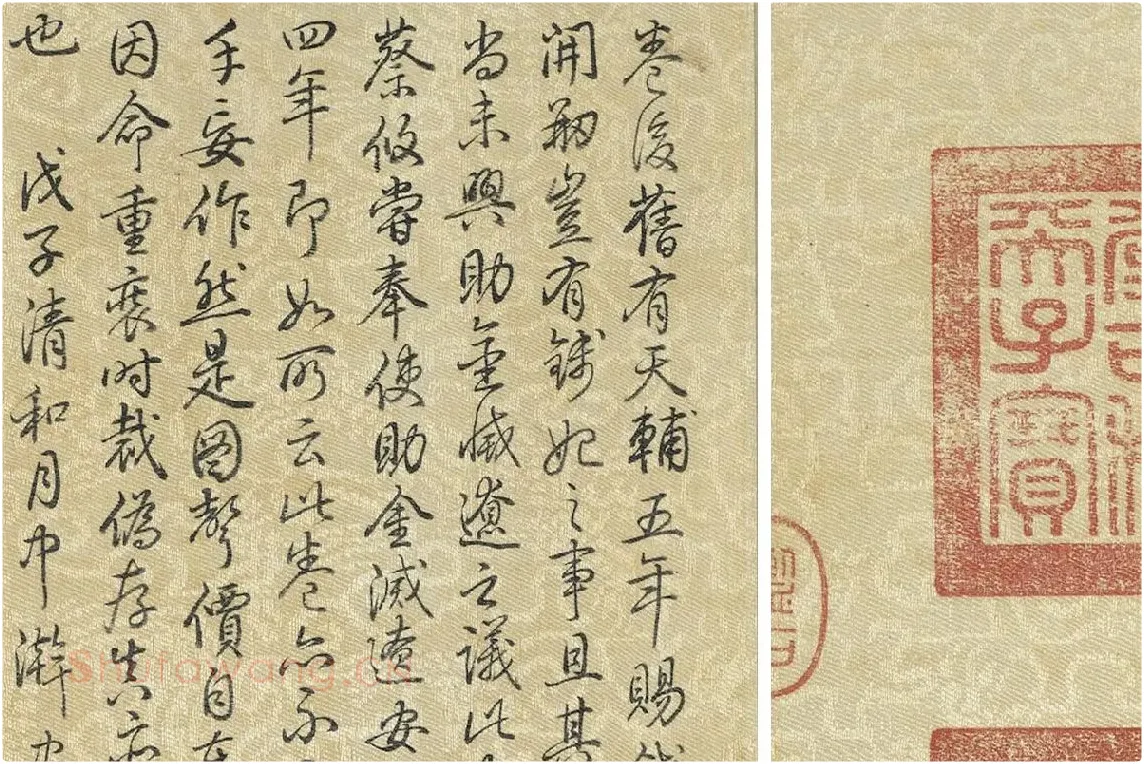 卷後舊有天輔五年賜
開刱豈有錢妃之事且其
尚未興助金滅遼之議此
蔡攸嘗奉使助金滅遼安
四年即如所云此卷亦不
手妄作然是圖聲價自在
因命重裝時裁偽存真亦
也 戊子清和月中澣
天子寶
Shufawang.cn